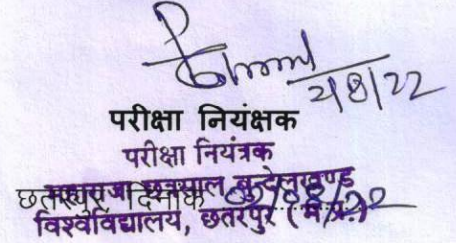 2/8/22
परीक्षा नियंक्षक
परीक्षा नियंत्रक
महाराजा छत्रसाल बुन्देलखण्ड
छतरपुर दिनांक 02/08/22
विश्वविद्यालय, छतरपुर (म.प्र.)